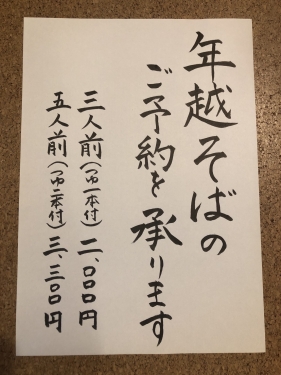 年越そばの
ご予約を承ります
三人前(つゆ一本付)二、〇〇〇円
五人前(つゆ二本付)三、三〇〇円